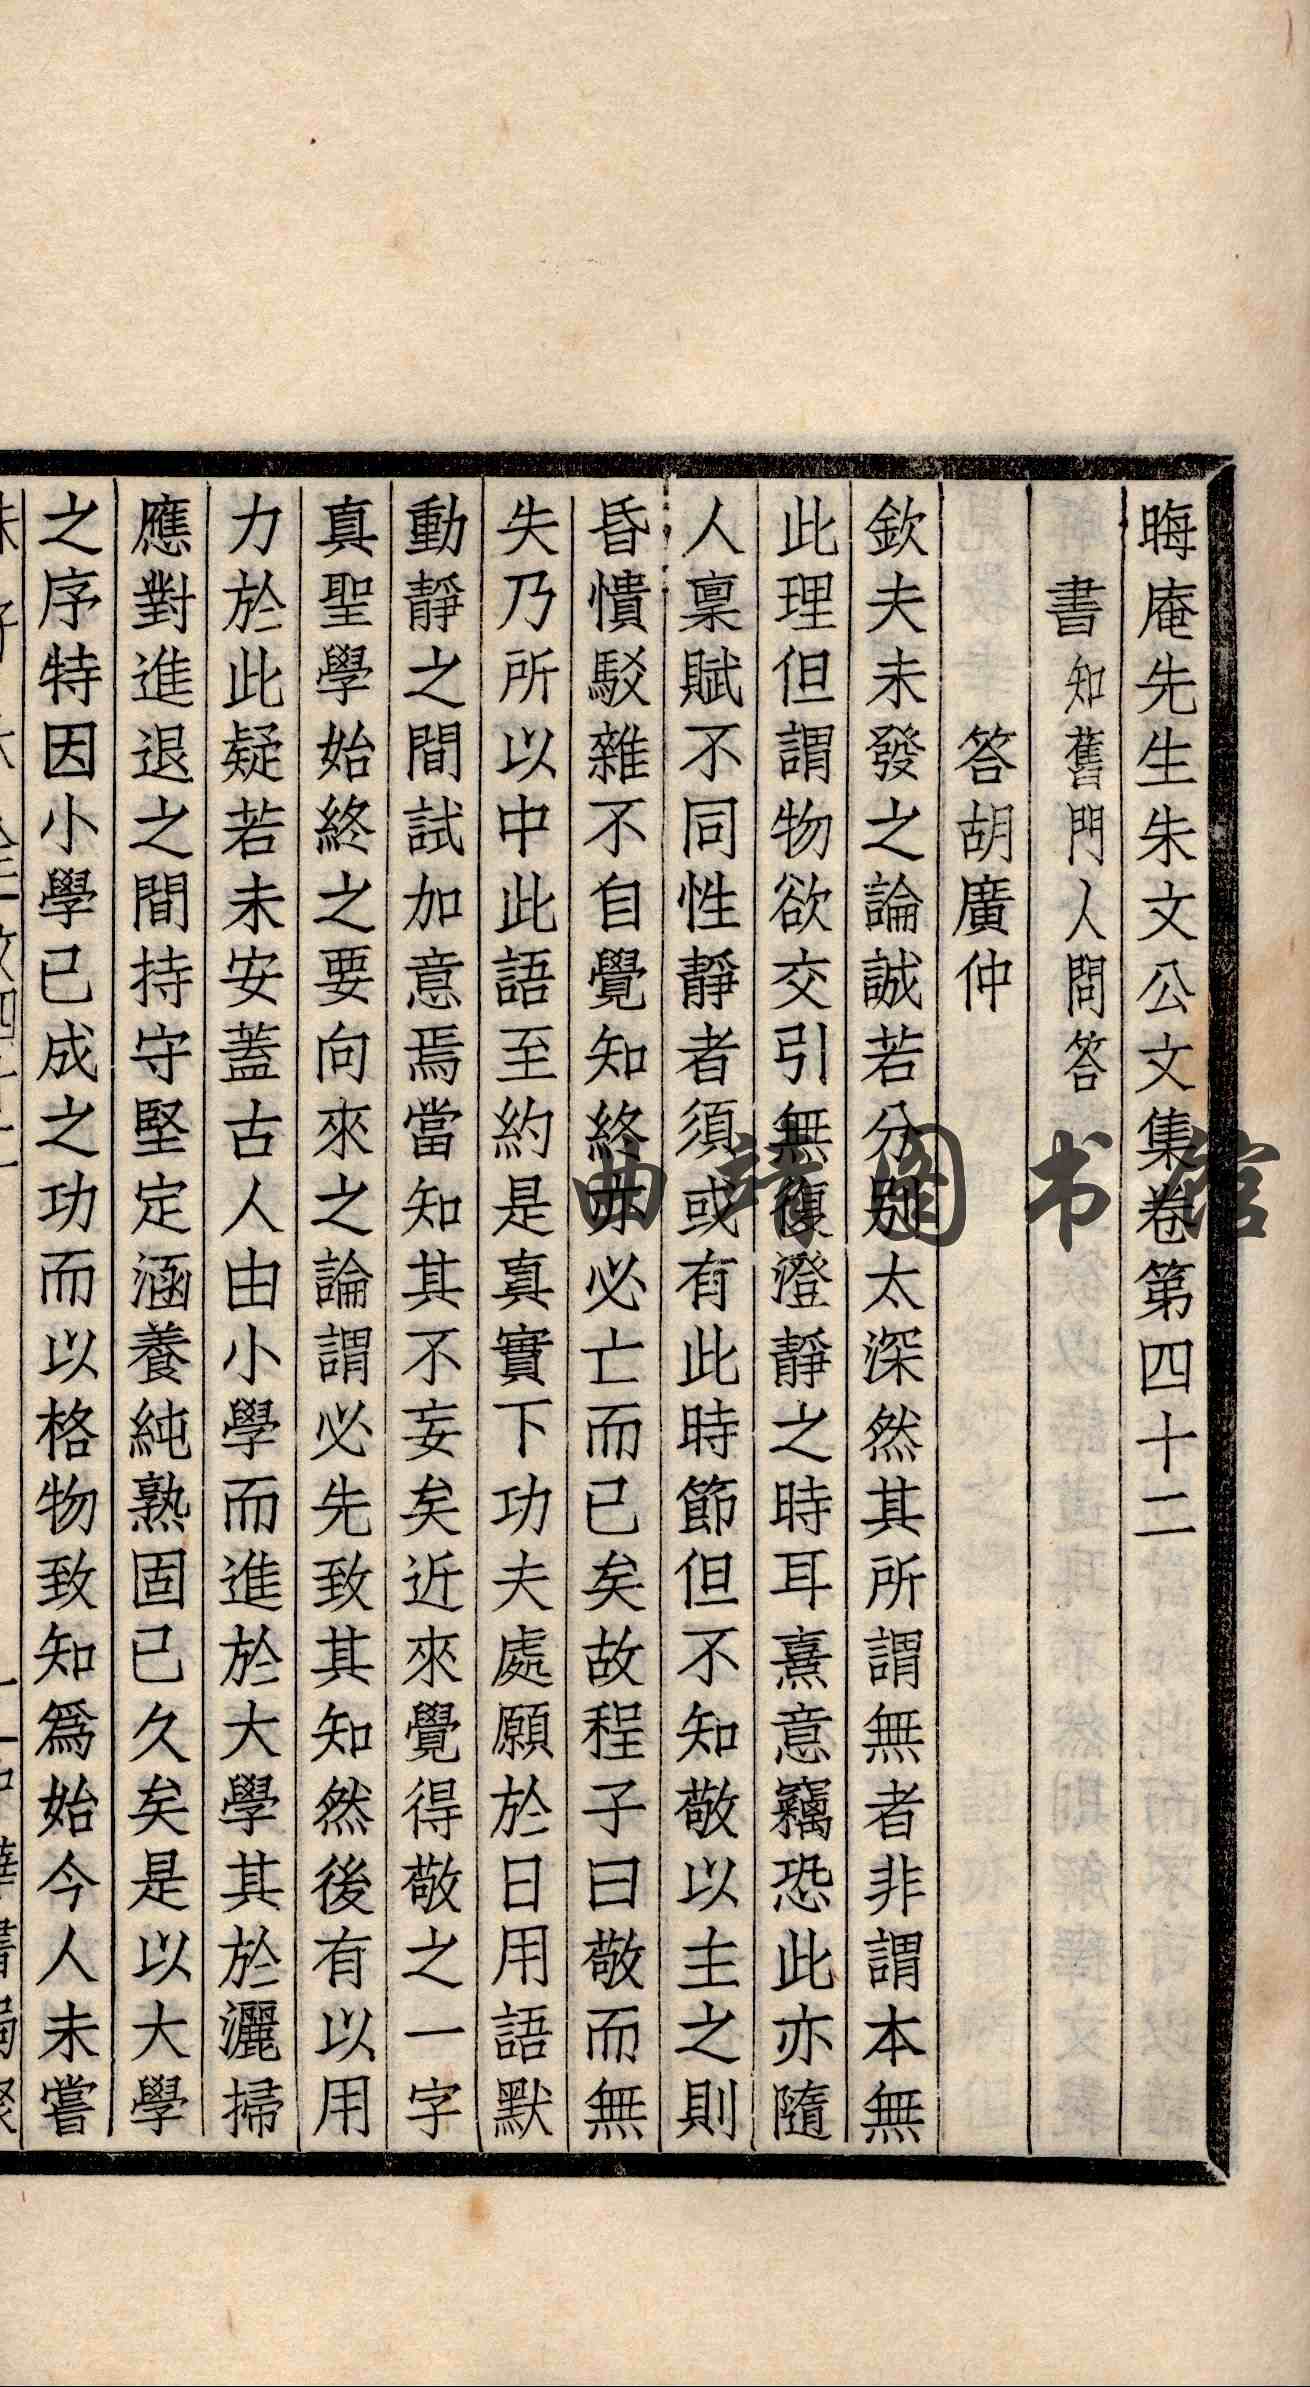 晦庵先生朱文公文集卷第四十二
書知舊門人問答
答胡廣仲
欽夫未發之論誠若分別太深然其所謂無者非謂本無
此理但謂物欲交引無復澄靜之時耳熹意竊恐此亦隨
人稟賦不同性靜者須或有此時節但不知敬以主之則
昏憒駁雜不自覺知終亦必亡而已矣故程子曰敬而無
失乃所以中此語至約是真實下功夫處願於日用語默
動靜之間試加意焉當知其不妄矣近來覺得敬之一字
真聖學始終之要向來之論謂必先致其知然後有以用
力於此疑若未安蓋古人由小學而進於大學其於灑掃
應對進退之間持守堅定涵養純熟固已久矣是以大學
之序特因小學已成之功而以格物致知爲始今人未嘗
曲靖图书馆